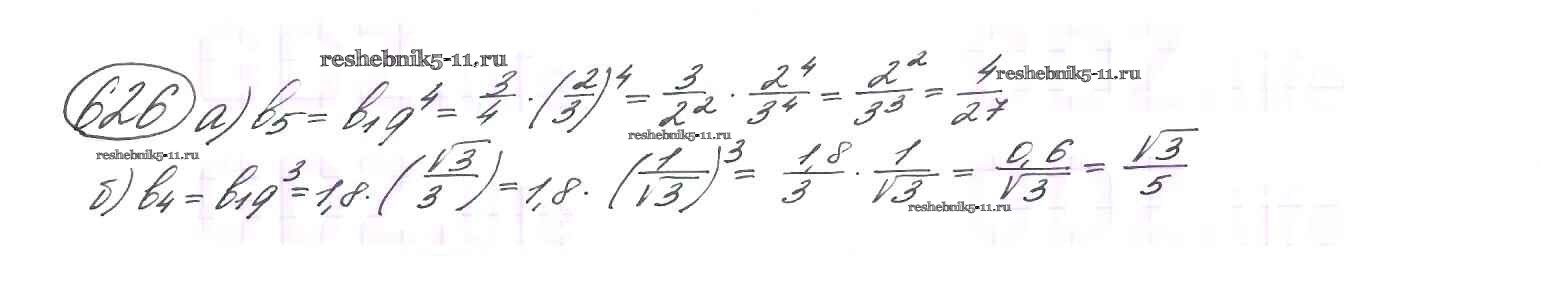 reshebnik5-11.ru
626 а) b₅ = b₁q⁴ = 3/4 · (2/3)⁴ = 3/2² · 2⁴/3⁴ = 2²/3³ = 4/27
reshebnik5-11.ru
reshebnik5-11.ru
reshebnik5-11.ru
б) b₄ = b₁q³ = 1,8 · (√3/3) = 1,8 · (1/√3)³ = 1,8/3 · 1/√3 = 0,6/√3 = √3/5
reshebnik5-11.ru